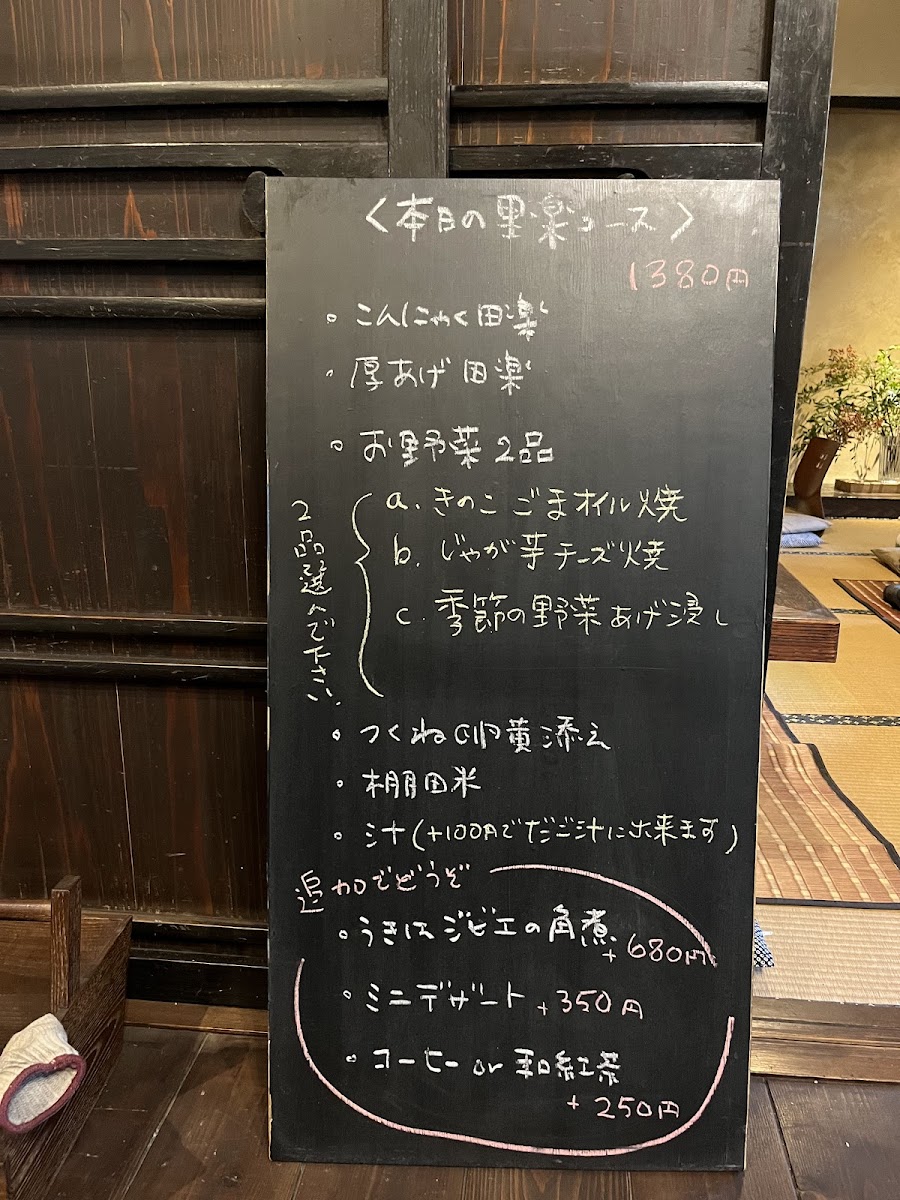 〈本日の里楽コース〉
1380円
・こんにゃく田楽
・厚あげ田楽
・お野菜2品
2品選んで下さい。
a. きのこごまオイル焼
b. じゃが芋チーズ焼
c. 季節の野菜あげ浸し
・つくね卵黄添え
・棚田米
・汁(+100円でだご汁に出来ます)
追加でどうぞ
・うきはジビエの角煮 +680円
・ミニデザート +350円
・コーヒー or 和紅茶
+250円